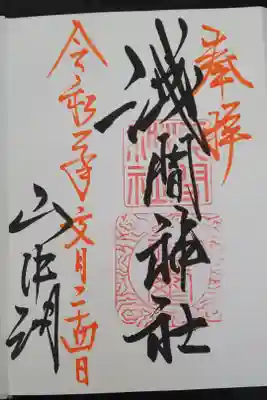 奉拝
淺間神社
令和年文月二十四日
山中湖